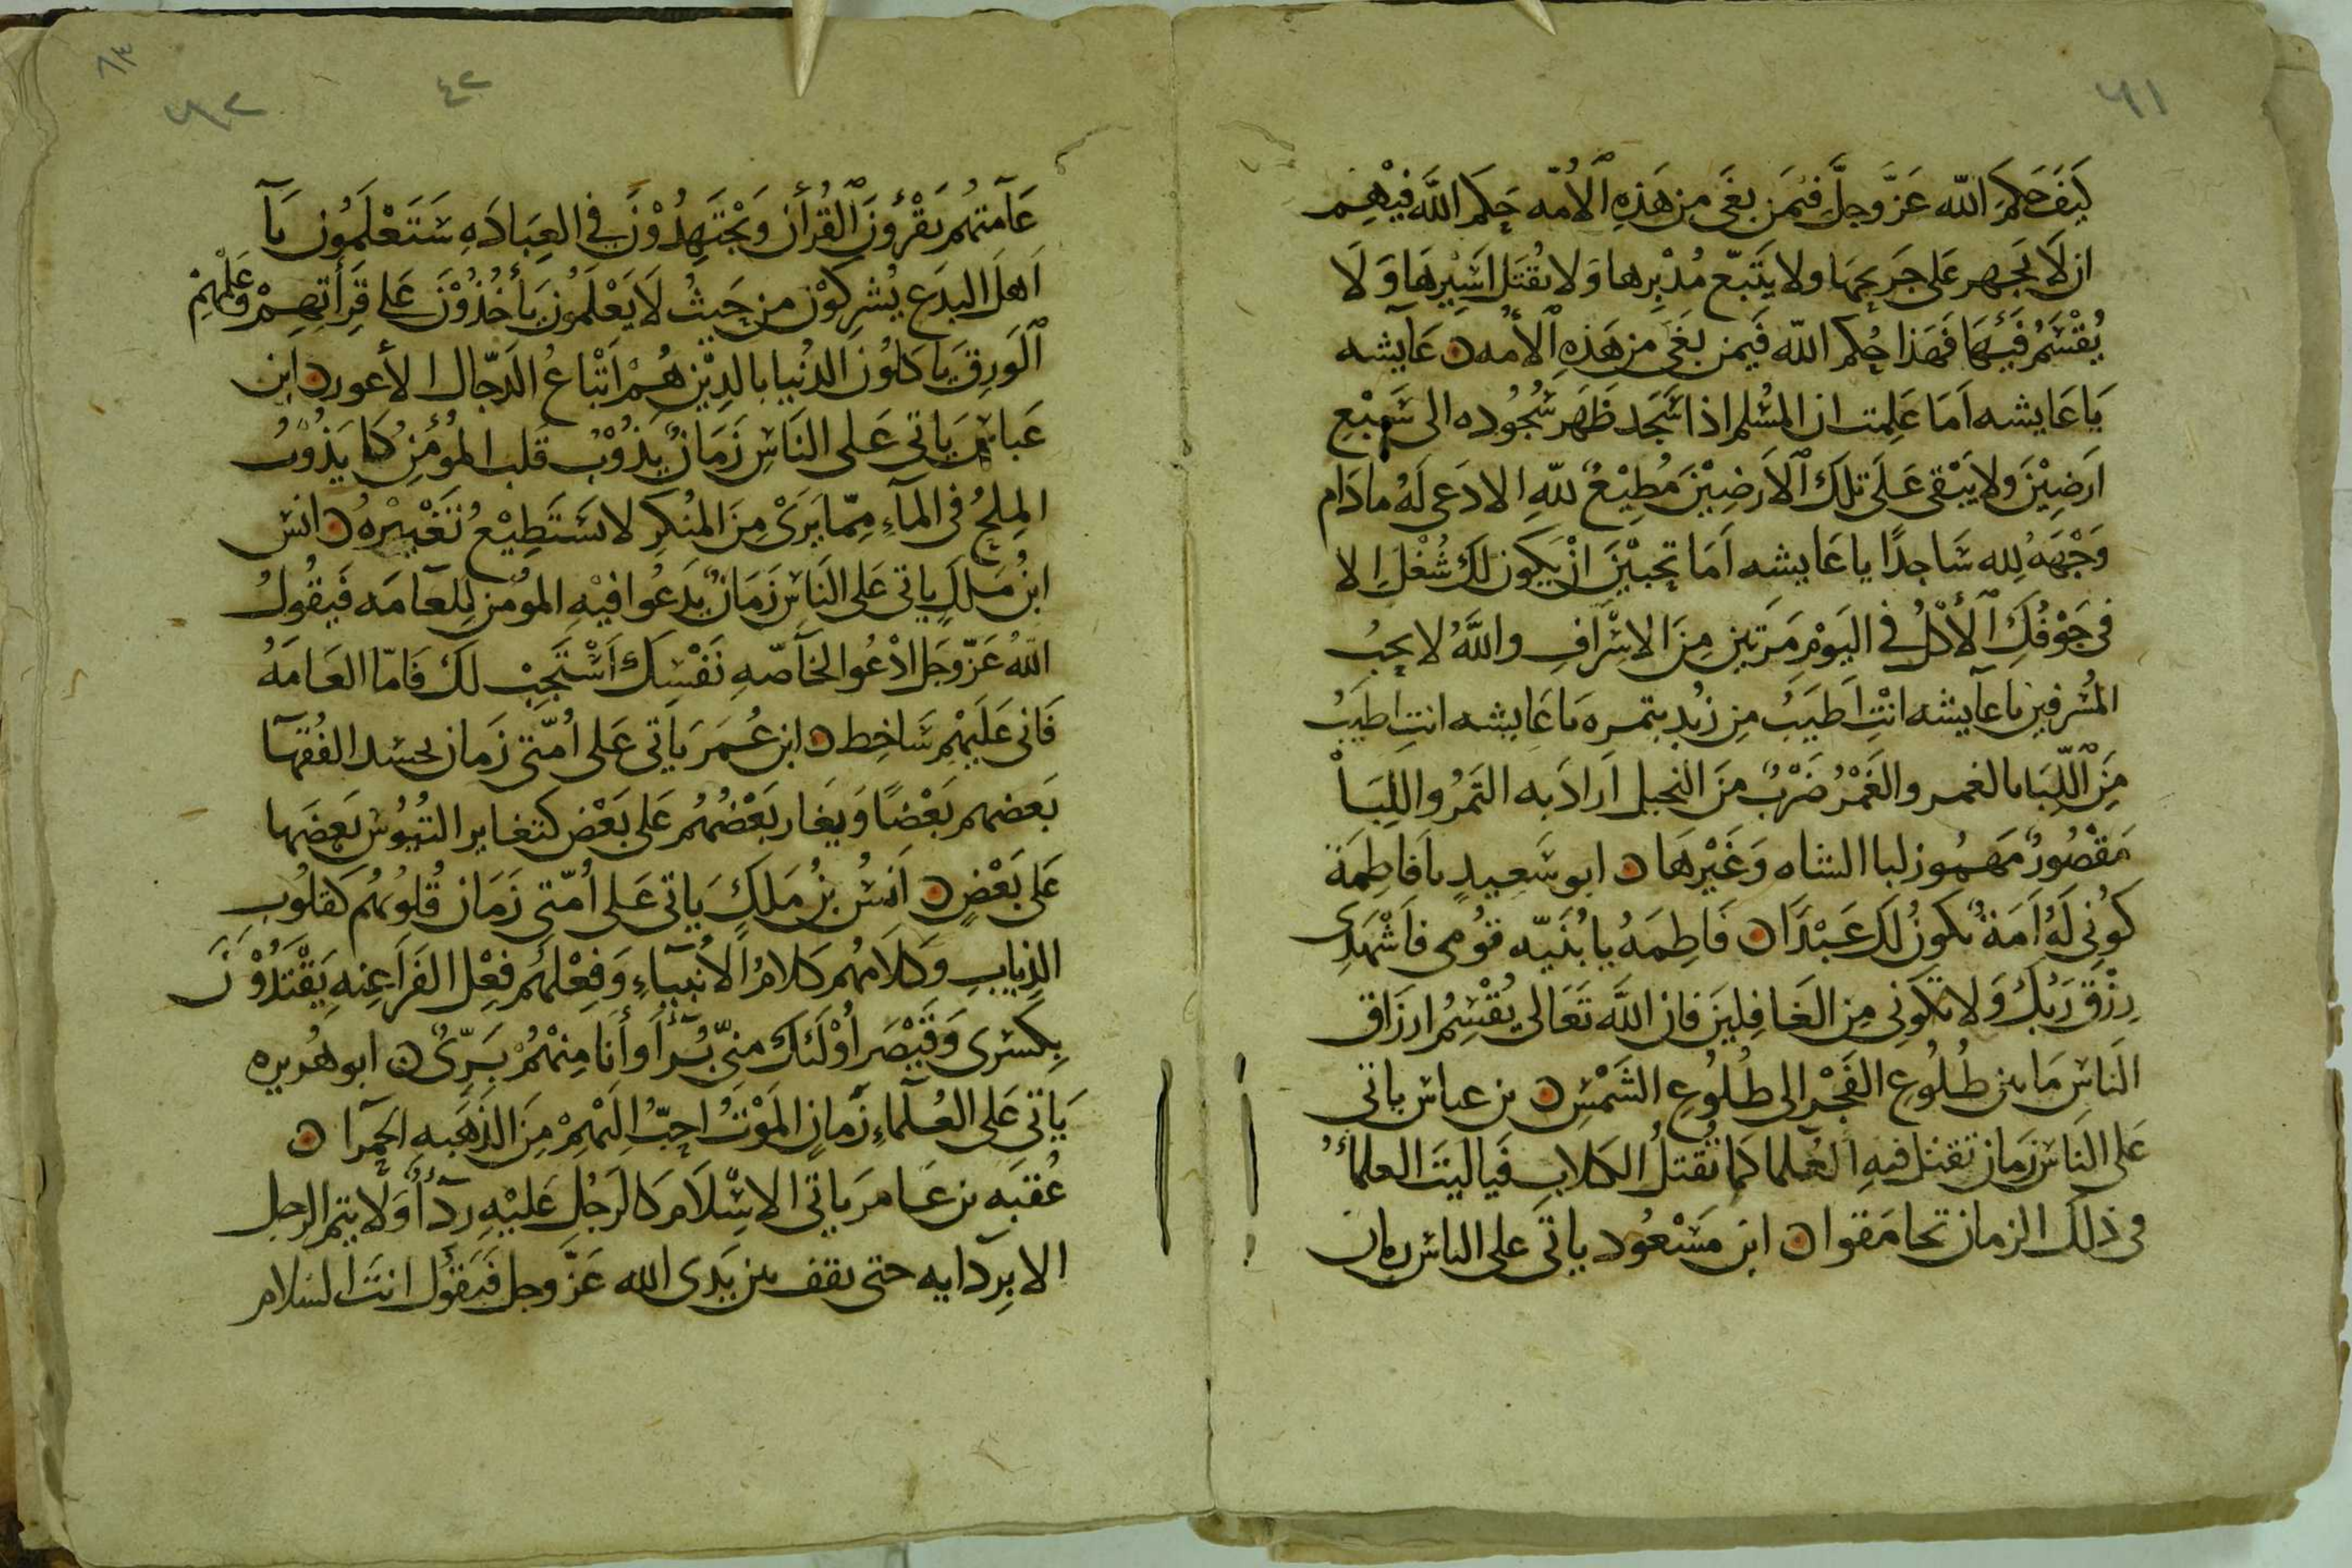 ٦١
كَيَفَ حَكَمَ الله عَزَّ وجلَّ فيمَن بغَى مِن هَذِهِ ٱلأُمّه حَكمَ اللَّه فيْهِم
ان لَا يجَهر عَلى جَريحَها ولا يتَبّع مُدْبِرها وَلا يُقتَل اسَيْرِهَا وَ لَا
يُقْسَمُ فَيْئهَا فَهَذا حُكم اللّه فَيمن بَغَى من هَذِهِ ٱلأمه ن عَآيشه
يَا عَايشه اَمَا عَلِمت ان المسُلم اذا سَجَد ظَهَر سُجُوده الى سَبْع
ارَضِيْنَ ولا يَبْقى عَلَى تلكَ ٱلاَرضِيْنَ مُطِيْعٌ للهِ الا دَعى لَهُ مادَام
وَجْهَهُ لله سَاجدًا يا عَايشه اَمَا تحِبيْنَ انْ يَكون لكِ شُغْل اِلا
فى جَوْفُكِ ٱلأكْلُ في اليَوْمِ مَرَتين مِنَ الاِسْرَافِ واللَّهُ لا يحِبُ
المُسْرفين يا عآيشه انْتِ اَطيَبُ مِن زُبدٍ بتمره يَا عَايشه انتِ اطيَبُ
مِنَ ٱللِّبَا بالغمر والغَمْرُ ضَرْبٌ مِنَ النخيل اَرادَ به التمَرُ واللِبَأ
مَقْصُورٌ مَهمُوز لبا الشاه وَغَيْرهَا ن ابو سَعِيدٍ يا فَاطِمَة
كَوُنِي لَهُ اَمَةً يكونُ لَكَ عَبْدَا ن فَاطِمَهُ يا بُنَيّه قوُمى فاَشْهَدِى
رِزْق رَبُكِ وَلا تكَوُنى مِن الغَافِليَن فان اللَّه تَعَالى يُقْسِمُ ارزَاق
الناسِ مَا بين طُلُوعِ الفَجْر الى طُلُوعِ الشَمْسِ ن بن عباس ياتى
عَلى النَاس زَمَان تقتل فيهِ العُلما كما تُقتلُ الكلابِ فيَا ليَتَ العلمآءُ
في ذلكَ الزمان تحامَقوا ن ابن مَسْعُود ياتى على الناس زمان
٨٣
٤٢
٦٢
عَآمتهُم يَقْرؤُنَ ٱلقُرأن وَيجْتَهِدُوْنَ في العِبَادَهِ سَتَعْلَمُون يآ
اَهلَ البدَع يُشرِكوْن من حَيثُ لَا يَعْلَمُونَ يَأخُذُوْنَ عَلى قِرَأتهِمْ وَعَلْمِهِمْ
ٱلوَرِقَ يَاكلوُن الدُنيا بالدِيْن هُمْ اَتْباعُ الدَجّال الأعور ن ابن
عَباسٍ يَاتى عَلى النَاسِ زَمَانٌ يَذُوْبُ قَلب المؤُمنِ كما يَذُوْبُ
المِلحُ فى المآءِ مِمّا يَرَىْ مِنَ المنُكرِ لا يَستَطِيْعُ تَغْيِيْرهُ ن انسَ
ابنُ مَلكٍ ياتى عَلى النَاسِ زَمَانٌ يَدَعُوا فيْهِ المؤمن لِلعامَه فَيقُولُ
اللهُ عَزّ وَجَل ادْعُوا لخَآصّهِ نَفْسِكَ اسْتَجِبْ لَكَ فَامّا العَامَهُ
فَانى عَلَيهْم سَاخِط ن ابن عُمَر يَاتى عَلى اُمّتى زَمان يحسد الفُقهَآ
بَعضهم بَعْضًا وَيَغار بَعْضُهُم عَلى بَعْض كتغاير التُيوُس بَعضَها
عَلى بَعْضٍ ن اَنسُ بنُ مَلكٍ يَاتى عَلى اُمّتى زَمَان قُلوُبهُم كَقلُوُب
الذِيابِ وَكلاَمهُم كلامُ الاَنبيآءِ وَفِعْلهُم فِعْل الفَرَاعِنهِ يَقْتَدُوْنَ
بِكسْرى وَقَيْصَر اُوْلَئكَ منىّ بُرَآأ وأنَا مِنهْمُ بَرِىٌ ن ابو هُريره
يَاتى عَلى العُلمآءِ زَمانٍ المَوْتُ احِبُّ اِلَيْهِمْ مِنَ الذهَبهِ الحَمرا ن
عُقبَه بن عَامر يَاتى الاِسْلاَم كَالرَجُل عَليْهِ رِدآءً وَلا يتم الرجل
الا بِردايه حتى يقف بين يَدَى الله عَزَّ وجل فَيَقوُل انتَ السَلام